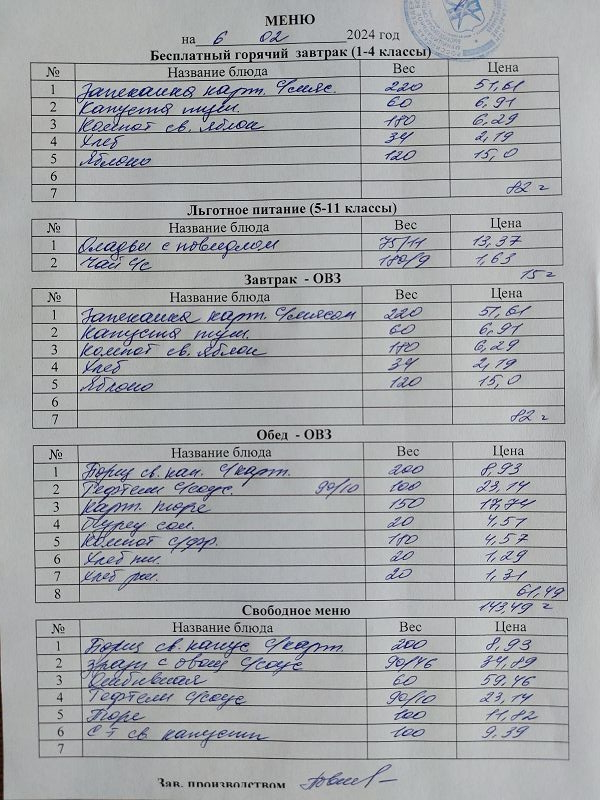 МЕНЮ
на 6 02 2024 год
Бесплатный горячий завтрак (1-4 классы)
№ Название блюда Вес Цена
1 Запеканка карт. с/мяс. 220 51,61
2 Капуста туш. 60 6,91
3 Компот св. яблок 180 6,29
4 Хлеб 34 2,19
5 Яблоко 120 15,0
6
7 82 г
Льготное питание (5-11 классы)
№ Название блюда Вес Цена
1 Оладьи с повидлом 75/11 13,37
2 Чай с/с 180/9 1,63
15 г
Завтрак - ОВЗ
№ Название блюда Вес Цена
1 Запеканка карт. с/мясом 220 51,61
2 Капуста туш. 60 6,91
3 Компот св. яблок 180 6,29
4 Хлеб 34 2,19
5 Яблоко 120 15,0
6
7 82 г
Обед - ОВЗ
№ Название блюда Вес Цена
1 Борщ св. кап. с/карт. 200 8,93
2 Тефтели с/соус. 90/10 100 23,14
3 Карт. пюре 150 17,74
4 Огурец сол. 20 4,51
5 Компот с/фр. 180 4,57
6 Хлеб пш. 20 1,29
7 Хлеб рж. 20 1,31
8 61,49
143,49 г
Свободное меню
№ Название блюда Вес Цена
1 Борщ св. капус с/карт. 200 8,93
2 Зразы с овощ с/соус 90/46 34,89
3 Отбивная 60 59,46
4 Тефтели с/соус 90/10 23,14
5 Пюре 100 11,82
6 С-т св. капусты 100 9,39
7
Зав. производством